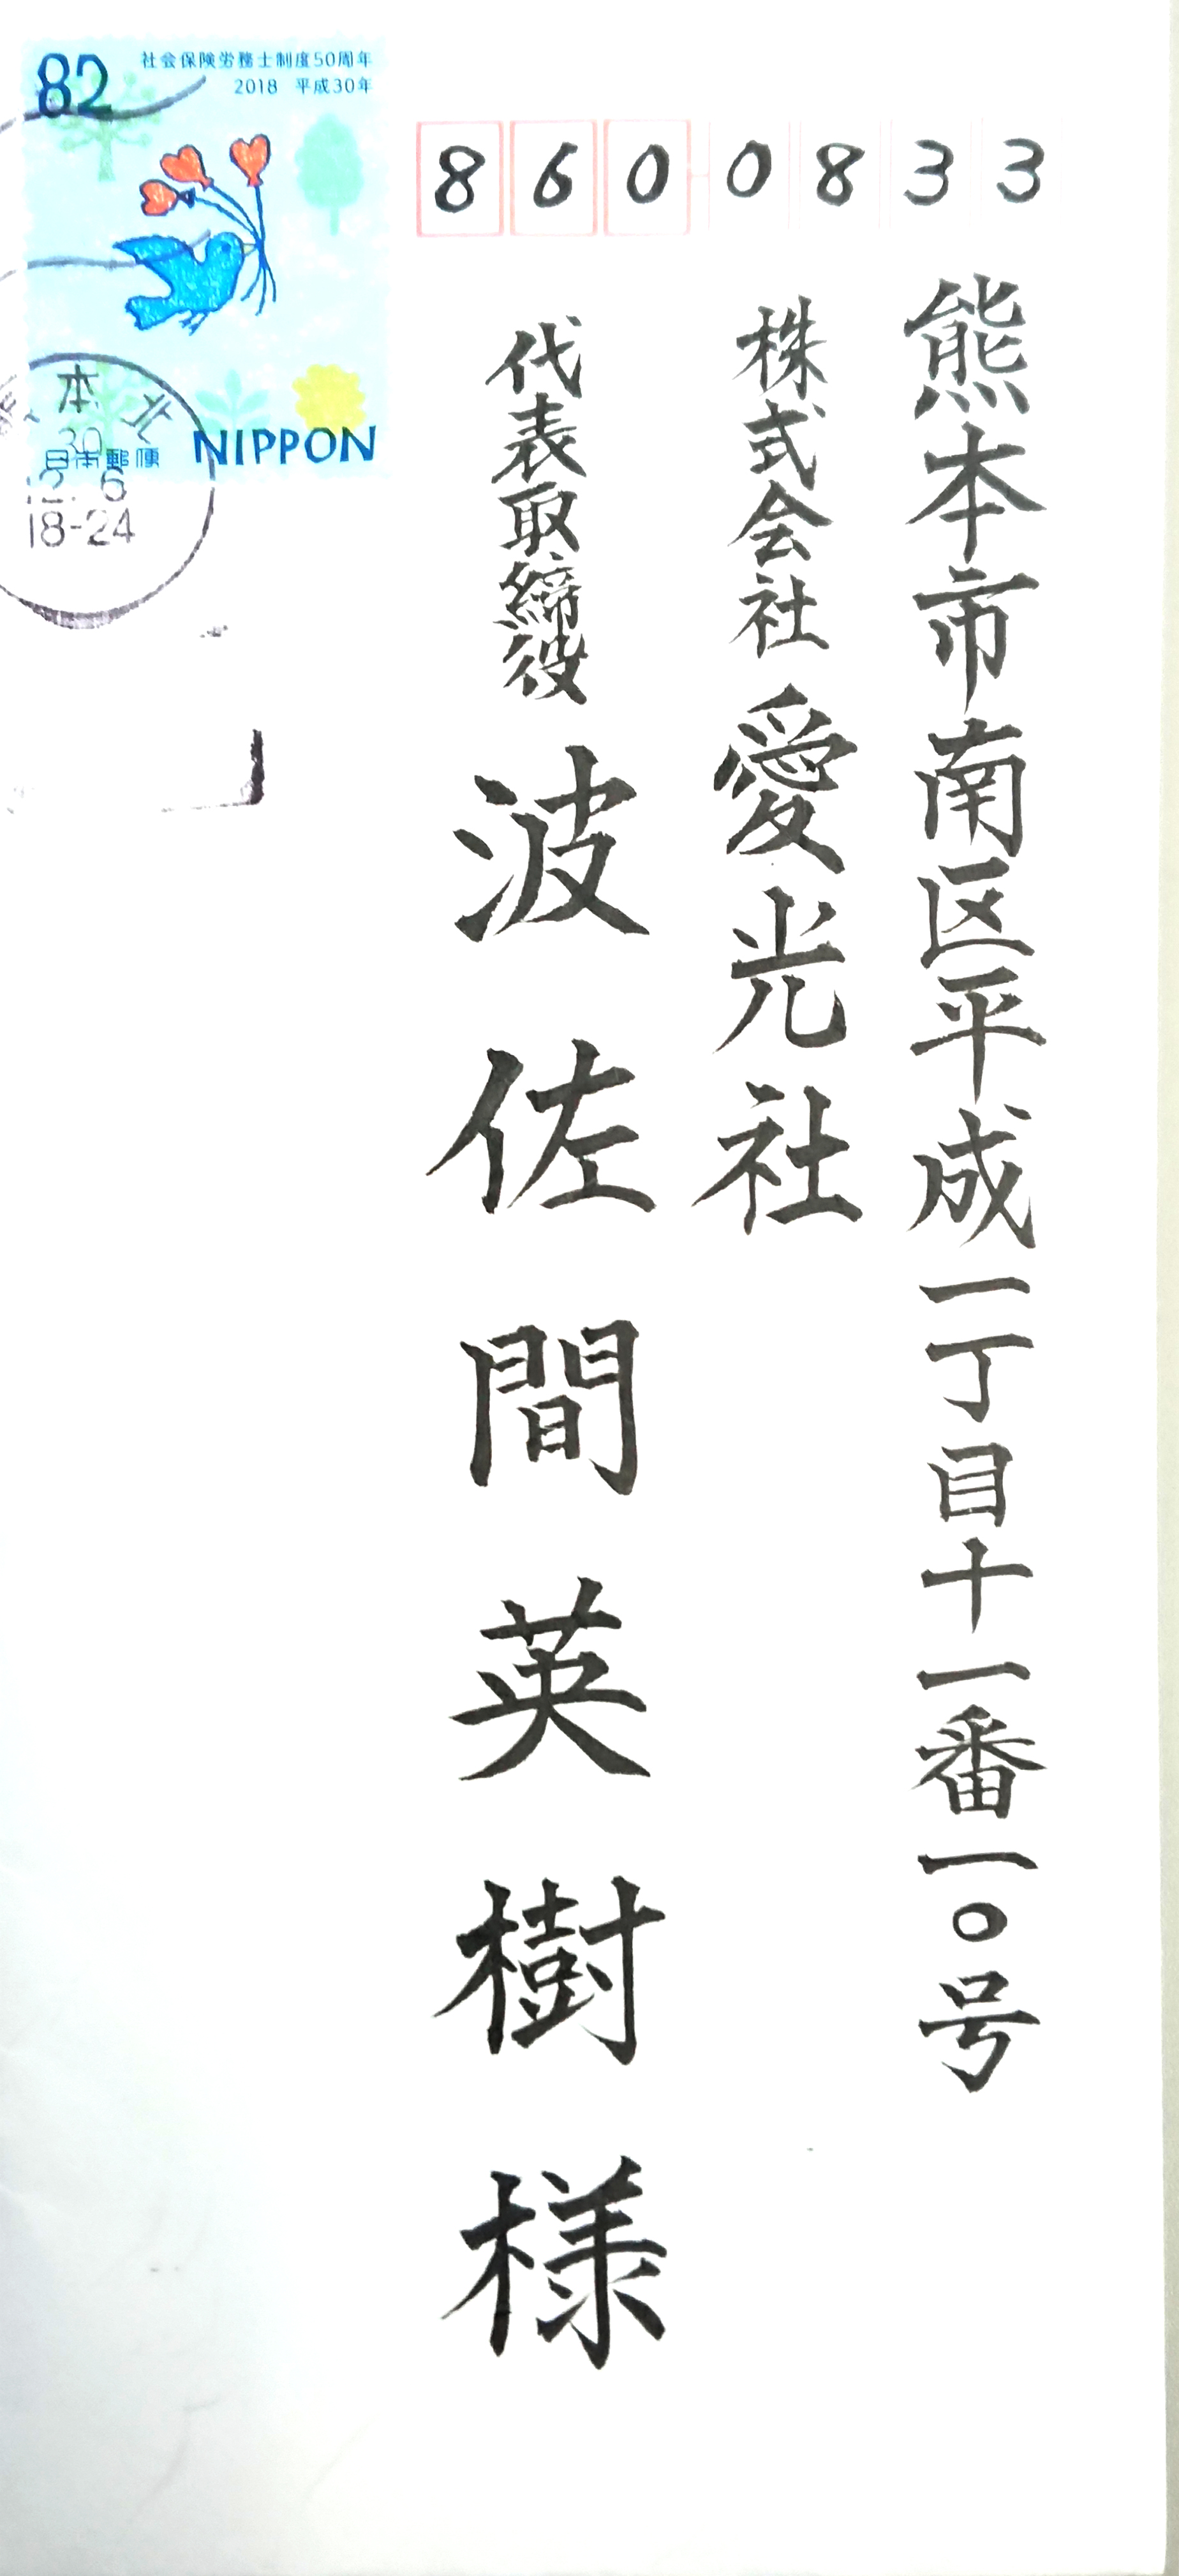 82
社会保険労務士制度50周年
2018 平成30年
860 0833
熊本市南区平成一丁目十一番一〇号
株式会社 愛光社
代表取締役 波佐間英樹様
本 北
30
日本郵便
NIPPON
12. 6
18-24